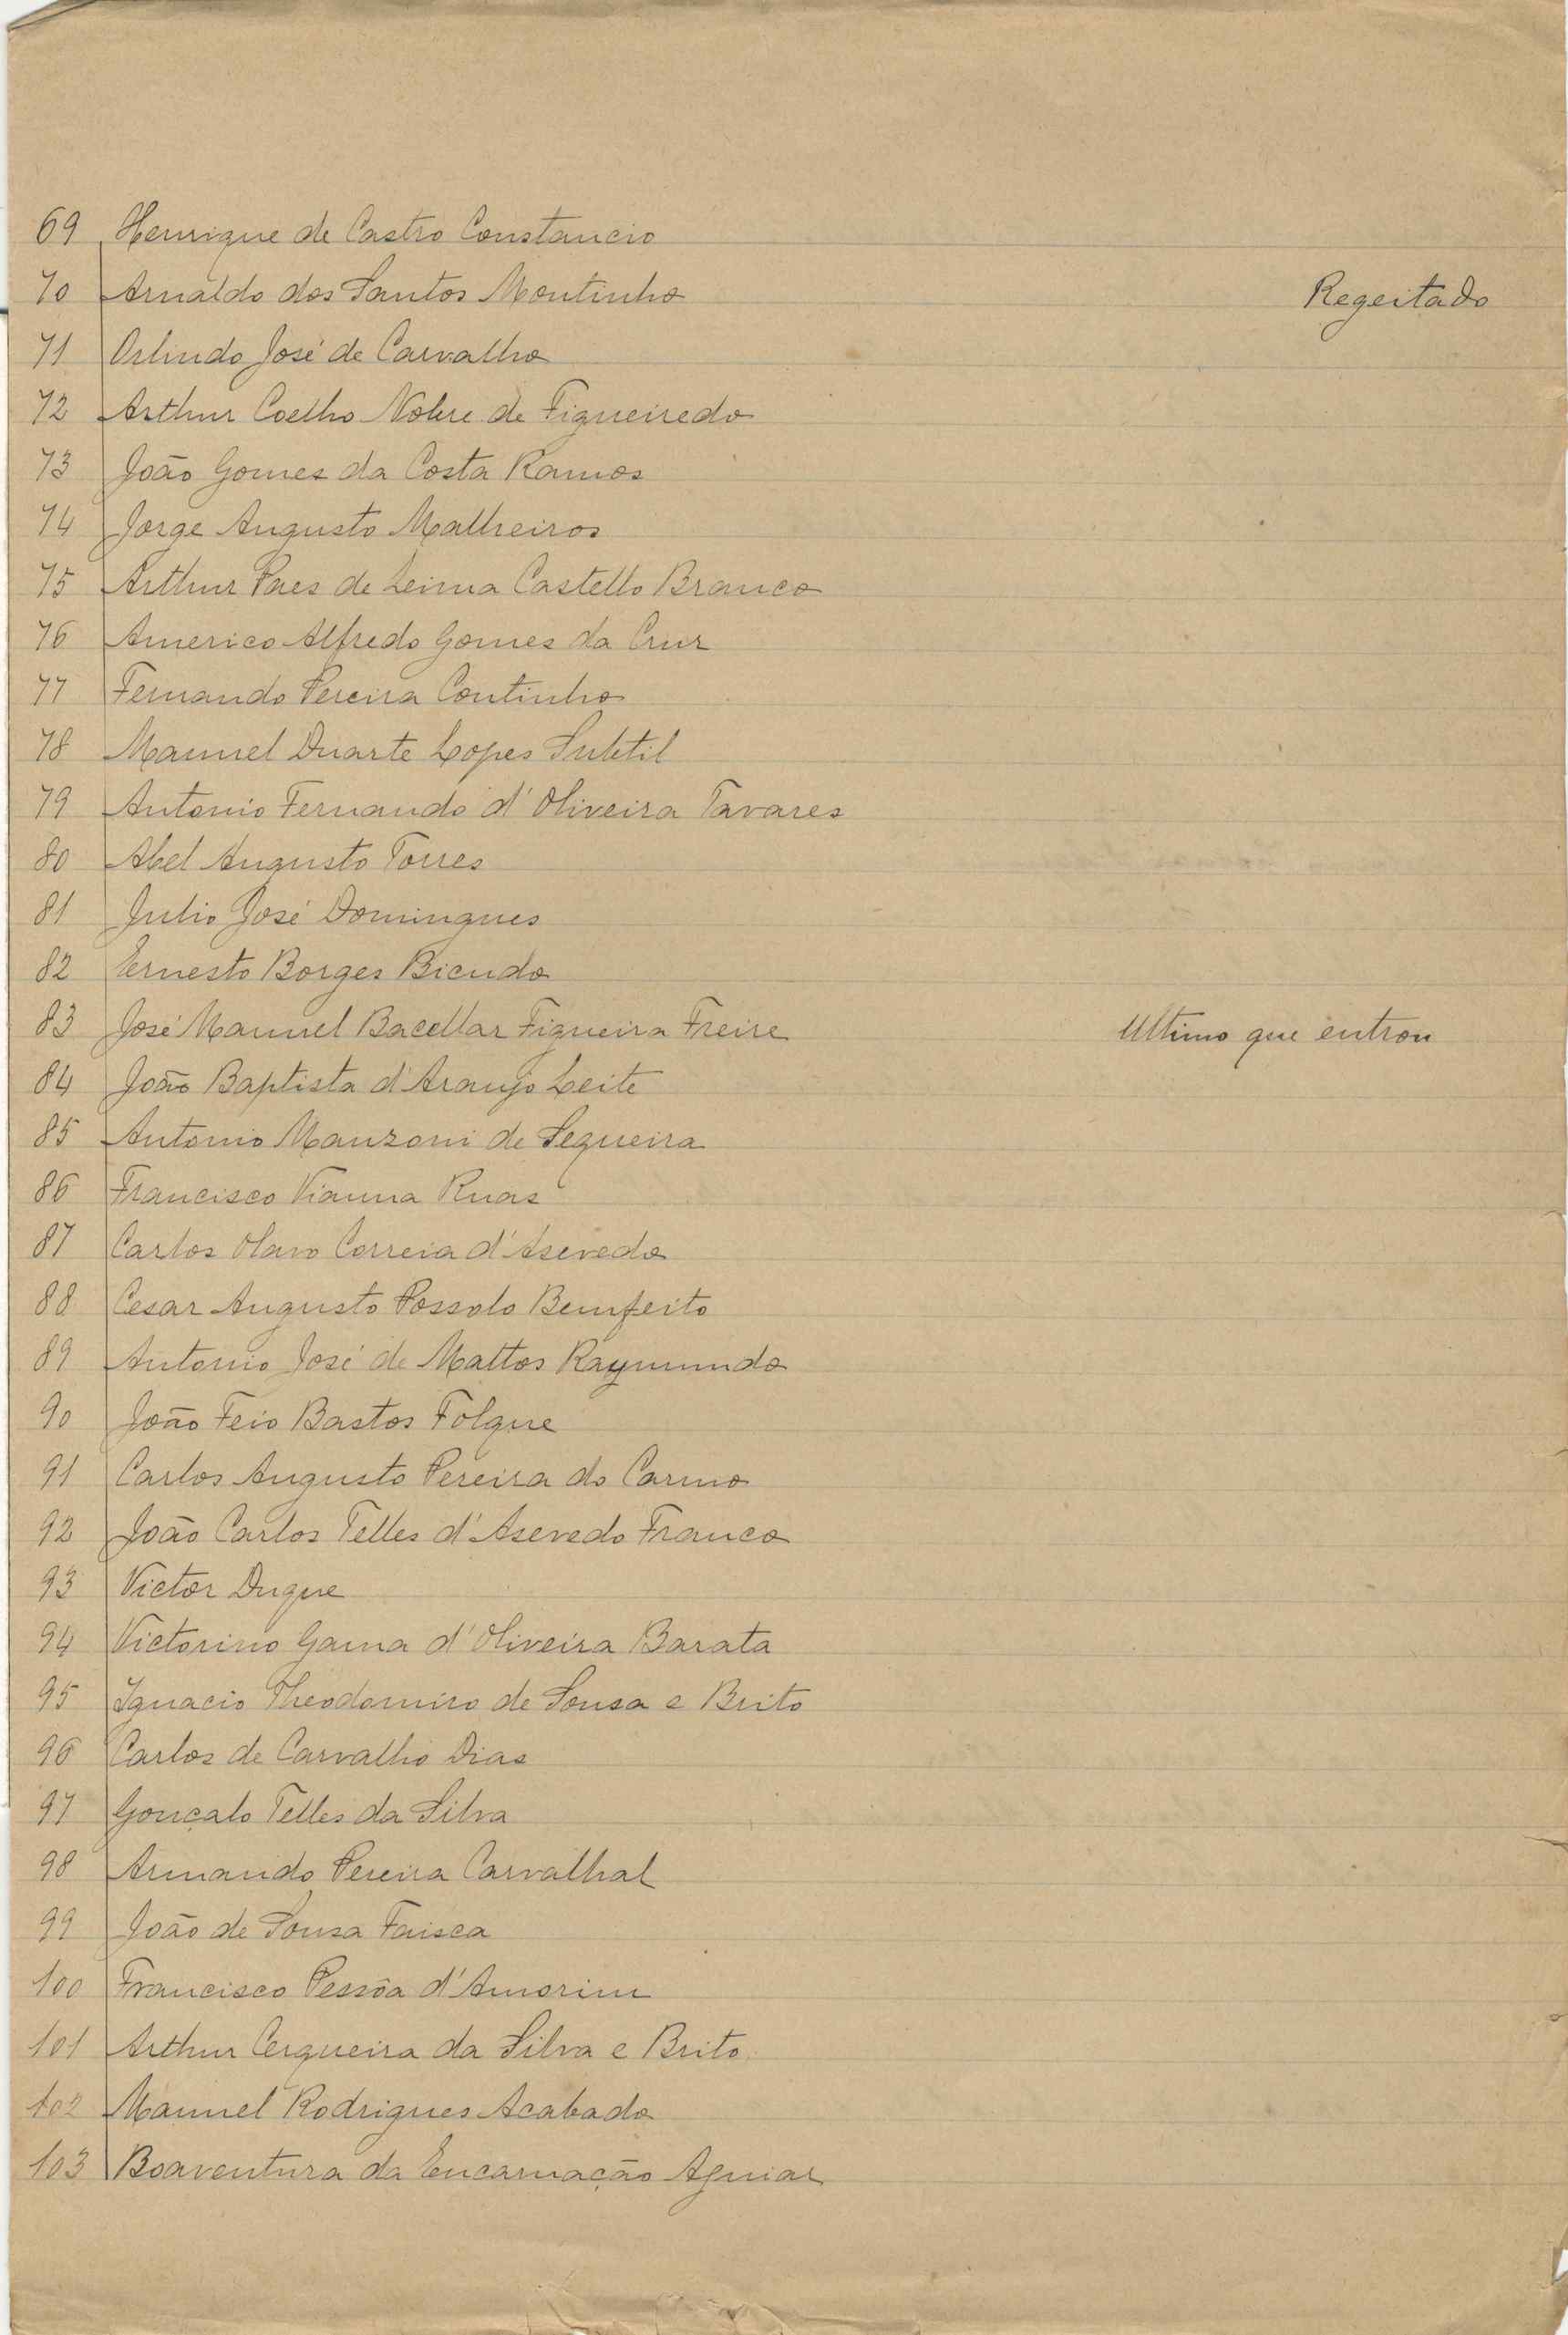 69 Henrique de Castro Constancio
70 Arnaldo dos Santos Moutinho Regeitado
71 Orlindo José de Carvalho
72 Arthur Coelho Nobre de Figueiredo
73 João Gomes da Costa Ramos
74 Jorge Augusto Malheiros
75 Arthur Paes de Leima Castello Branco
76 Americo Alfredo Gomes da Cruz
77 Fernando Pereira Coutinho
78 Manuel Duarte Lopes Subtil
79 Antonio Fernando d'Oliveira Tavares
80 Abel Augusto Torres
81 Julio José Domingues
82 Ernesto Borges Bicudo
83 José Manuel Bacellar Figueira Freire Ultimo que entrou
84 João Baptista d'Araujo Leite
85 Antonio Manzoni de Sequeira
86 Francisco Vianna Ruas
87 Carlos Olavo Correia d'Asevedo
88 Cesar Augusto Possolo Bemfeito
89 Antonio José de Mattos Raymundo
90 João Feio Bastos Folque
91 Carlos Augusto Pereira do Carmo
92 João Carlos Telles d'Asevedo Franco
93 Victor Duque
94 Victorino Gama d'Oliveira Barata
95 Ignacio Theodomiro de Sousa e Brito
96 Carlos de Carvalho Dias
97 Gonçalo Telles da Silva
98 Armando Pereira Carvalhal
99 João de Sousa Faisca
100 Francisco Pessôa d'Amorim
101 Arthur Cerqueira da Silva e Brito
102 Manuel Rodrigues Acabado
103 Boaventura da Encarnação Aguiar